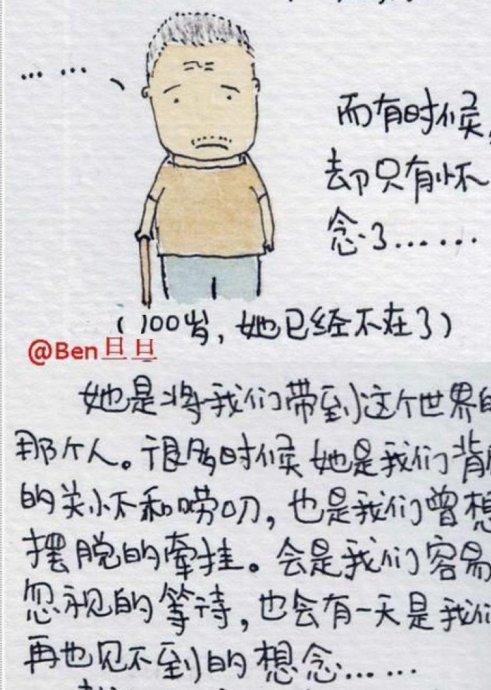 ... ...
而有时候,
却只有怀
念了......
(100岁,她已经不在了)
@Ben旦旦
她是将我们带到这个世界的
那个人。很多时候她是我们背
的关怀和唠叨,也是我们曾想
摆脱的牵挂。会是我们容易
忽视的等待,也会有一天是我们
再也见不到的想念......